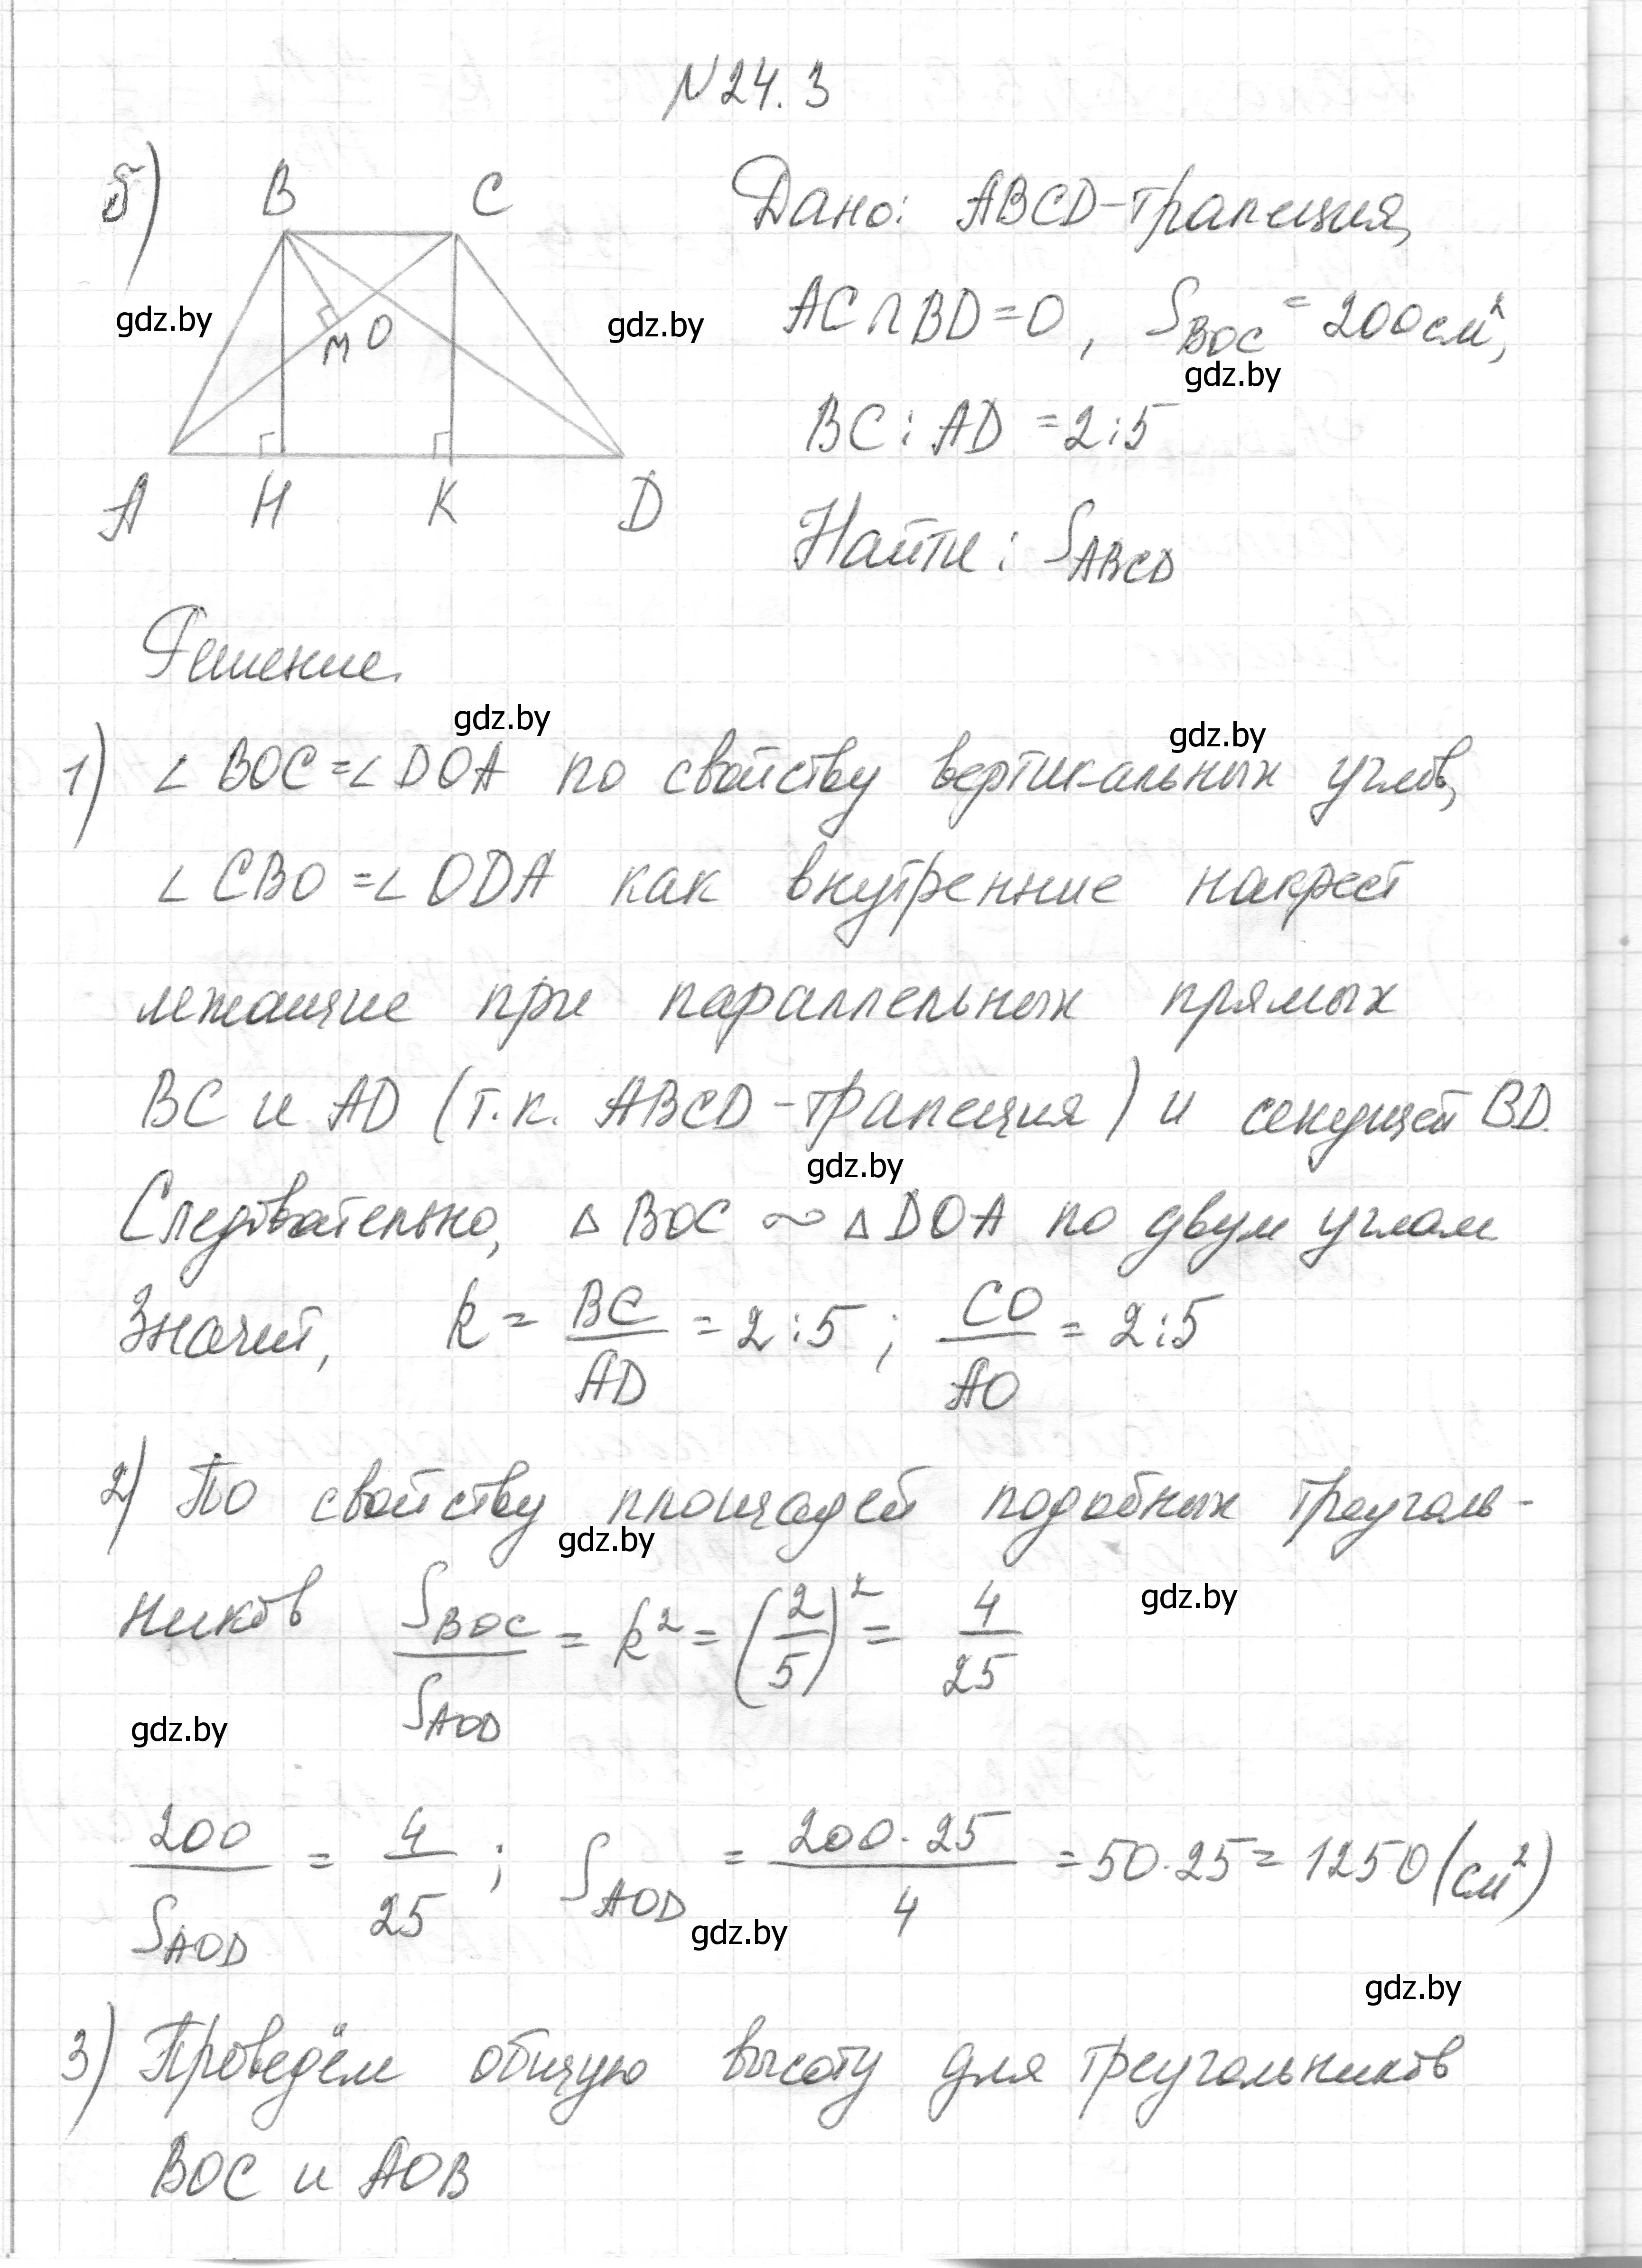 N 24.3
б) B C
Дано: ABCD-трапеция,
gdz.by
M O
gdz.by
AC∩BD=O, S_BOC = 200 см²,
gdz.by
BC : AD = 2:5
A H K D
Найти: S_ABCD
Решение.
gdz.by
gdz.by
1) ∠ BOC = ∠ DOA по свойству вертикальных углов,
∠ CBO = ∠ ODA как внутренние накрест
лежащие при параллельных прямых
BC и AD (т.к. ABCD-трапеция) и секущей BD.
gdz.by
Следовательно, △ BOC ∾ △ DOA по двум углам
Значит, k = BC/AD = 2:5 ; CO/AO = 2:5
2) По свойству площадей подобных треуголь-
gdz.by
ников S_BOC/S_AOD = k² = (2/5)² = 4/25
gdz.by
gdz.by
200/S_AOD = 4/25 ; S_AOD = 200·25/4 = 50·25 = 1250 (см²)
gdz.by
gdz.by
3) Проведём общую высоту для треугольников
BOC и AOB